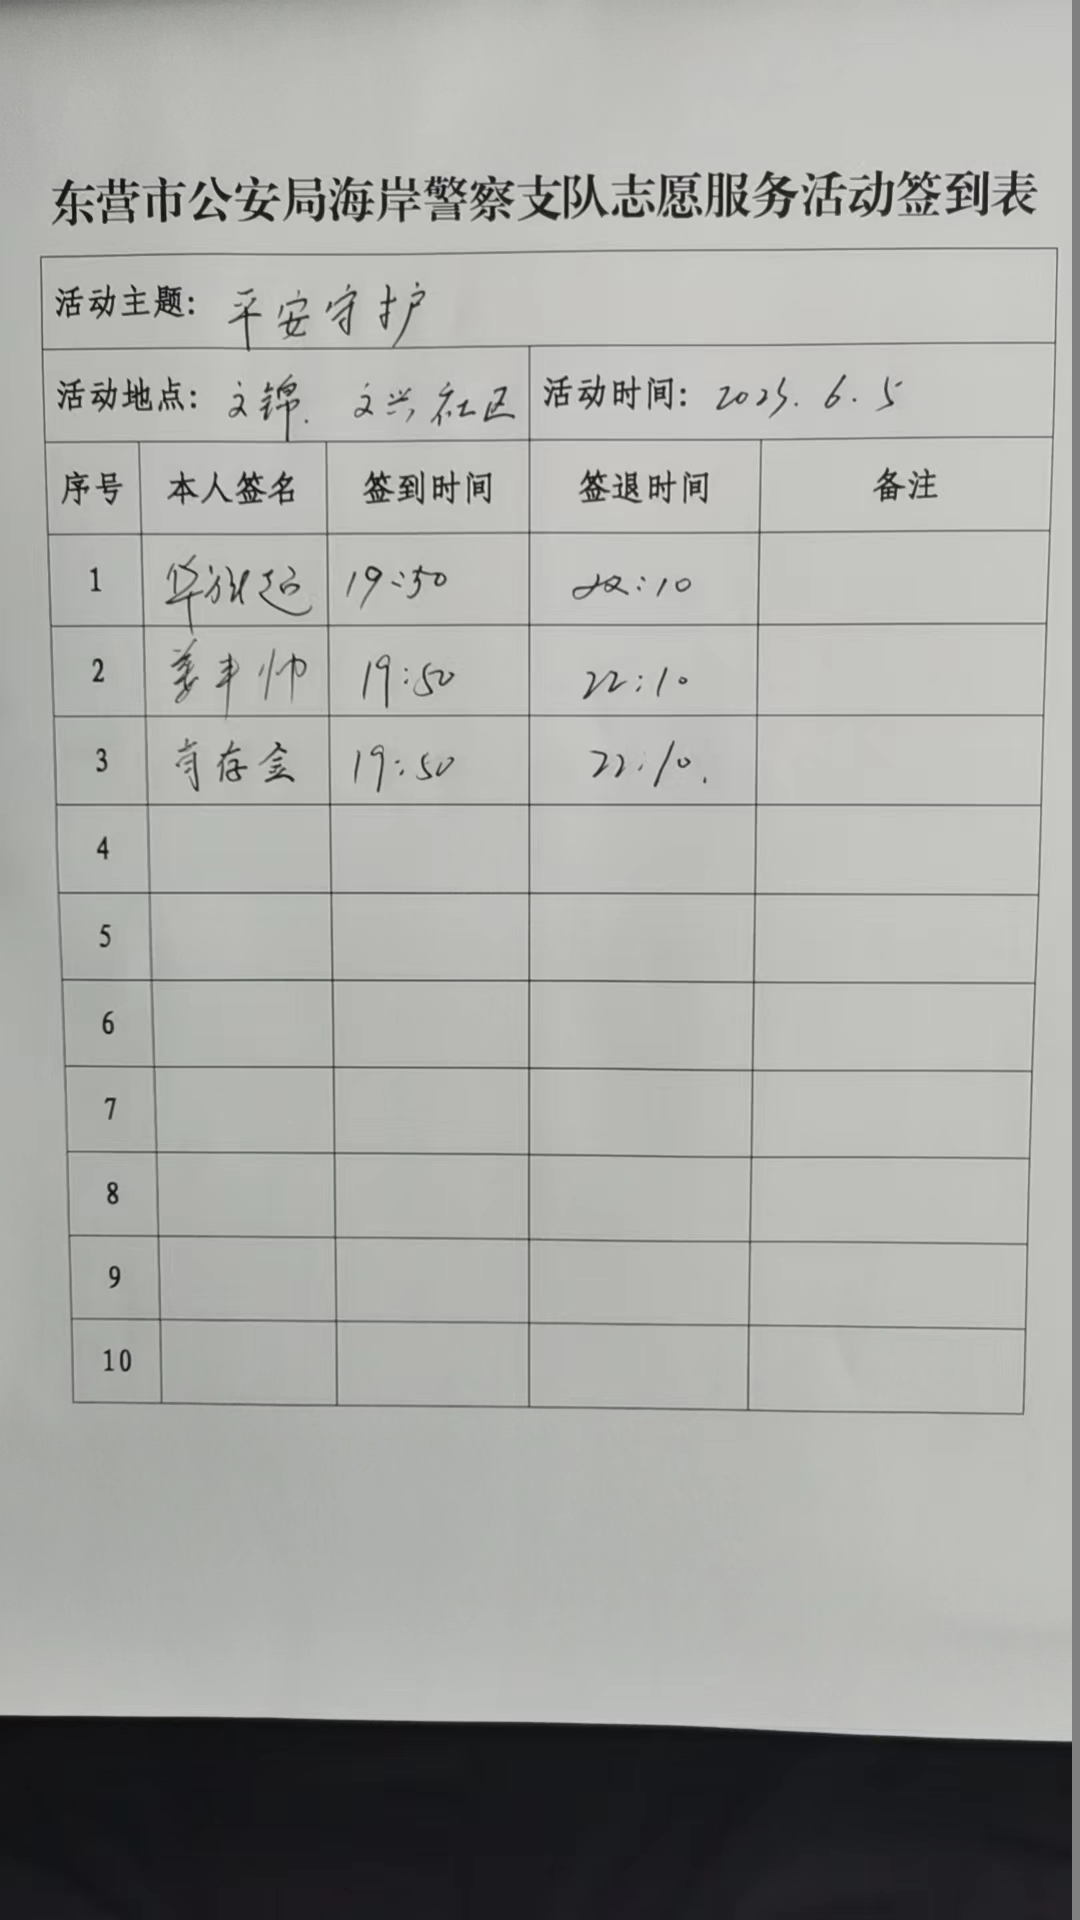 东营市公安局海岸警察支队志愿服务活动签到表
活动主题: 平安守护
活动地点: 文锦. 文兴社区 活动时间: 2025. 6. 5
序号 本人签名 签到时间 签退时间 备注
1 华 超 19:50 22:10
2 姜丰帅 19:50 22:10
3 肖存金 19:50 22:10.
4
5
6
7
8
9
10